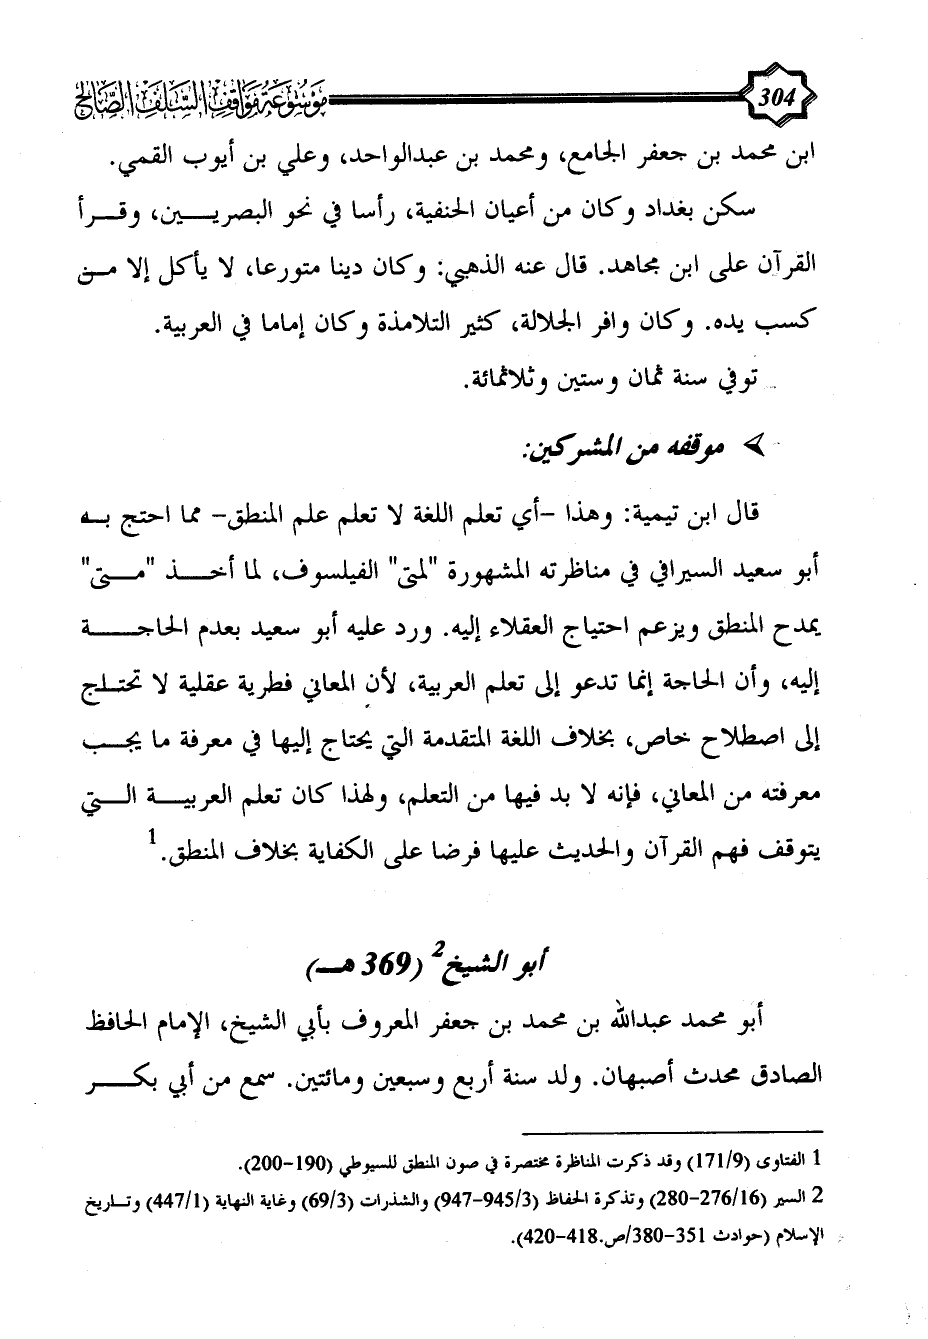 304 موسوعة مواقف السلف الصالح
ابن محمد بن جعفر الجامع، ومحمد بن عبدالواحد، وعلي بن أيوب القمي.
سكن بغداد وكان من أعيان الحنفية، رأسا في نحو البصريين، وقرأ
القرآن على ابن مجاهد. قال عنه الذهبي: وكان دينا متورعا، لا يأكل إلا من
كسب يده. وكان وافر الجلالة، كثير التلامذة وكان إماما في العربية.
توفي سنة ثمان وستين وثلاثمائة.
موقفه من المشركين:
قال ابن تيمية: وهذا -أي تعلم اللغة لا تعلم علم المنطق- مما احتج به
أبو سعيد السيرافي في مناظرته المشهورة "لمتى" الفيلسوف، لما أخذ "متى"
يمدح المنطق ويزعم احتياج العقلاء إليه. ورد عليه أبو سعيد بعدم الحاجة
إليه، وأن الحاجة إنما تدعو إلى تعلم العربية، لأن المعاني فطرية عقلية لا تحتاج
إلى اصطلاح خاص، بخلاف اللغة المتقدمة التي يحتاج إليها في معرفة ما يجب
معرفته من المعاني، فإنه لا بد فيها من التعلم، ولهذا كان تعلم العربية التي
يتوقف فهم القرآن والحديث عليها فرضا على الكفاية بخلاف المنطق.1
أبو الشيخ2 (369 هـ)
أبو محمد عبدالله بن محمد بن جعفر المعروف بأبي الشيخ، الإمام الحافظ
الصادق محدث أصبهان. ولد سنة أربع وسبعين ومائتين. سمع من أبي بكر
1 الفتاوى (171/9) وقد ذكرت المناظرة مختصرة في صون المنطق للسيوطي (190-200).
2 السير (276/16-280) وتذكرة الحفاظ (945/3-947) والشذرات (69/3) وغاية النهاية (447/1) وتاريخ
الإسلام (حوادث 351-380/ص.418-420).